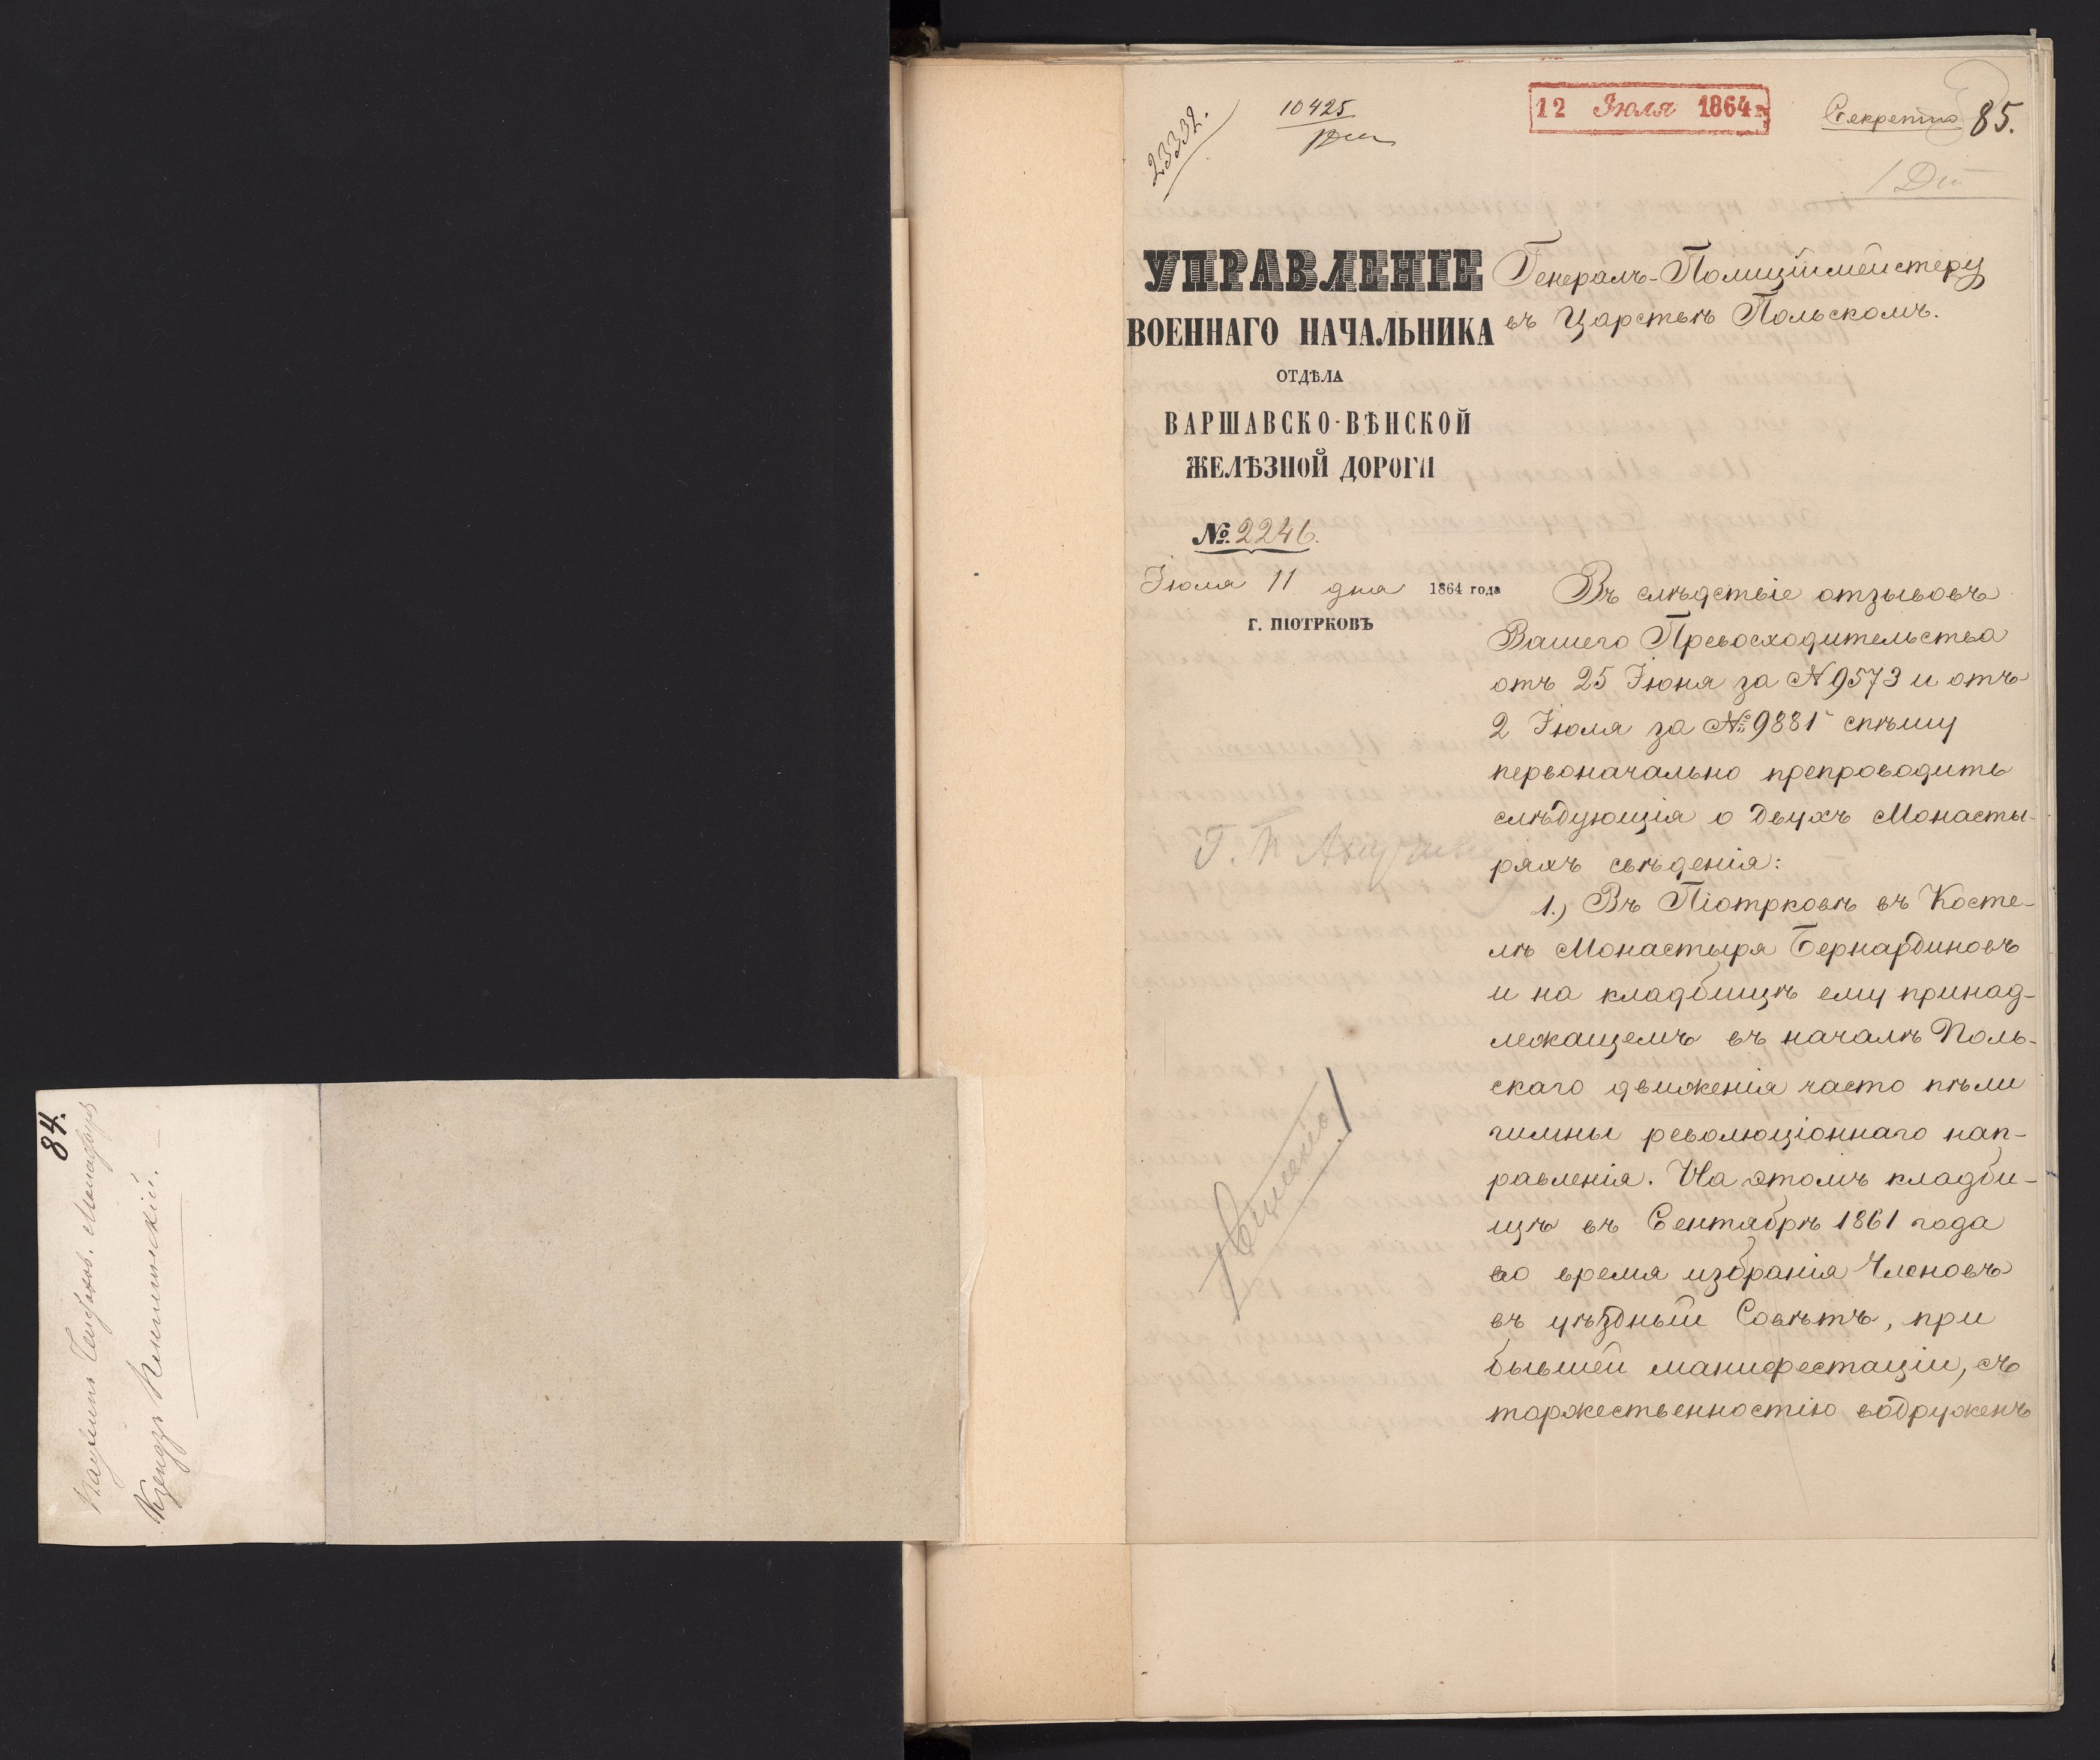 84.
Ксендзъ
2333.
10425
12 Іюля 1864 г.
Секретно 85.
УПРАВЛЕНІЕ
ВОЕННАГО НАЧАЛЬНИКА
ОТДѢЛА
ВАРШАВСКО-ВѢНСКОЙ
ЖЕЛѢЗНОЙ ДОРОГИ
№ 2246.
Іюля 11 дня 1864 года
Г. ПІОТРКОВЪ
Генералъ-Полиціймейстеру
въ Царствѣ Польскомъ.
Въ слѣдствіе отзывовъ
Вашего Превосходительства
отъ 25 Іюня за № 9573 и отъ
2 Іюля за № 9881 спѣшу
первоначально препроводить
слѣдующія о двухъ Монасты-
ряхъ свѣденія:
1.) Въ Піотрковѣ въ Косте-
лѣ Монастыря Бернардиновъ
и на кладбищѣ ему принад-
лежащемъ въ началѣ Поль-
скаго движенія часто пѣли
гимны революціоннаго нап-
равленія. На этомъ кладби-
щѣ въ Сентябрѣ 1861 года
во время избранія Членовъ
въ уѣздный Совѣтъ, при
бывшей манифестаціи, съ
торжественностію водруженъ